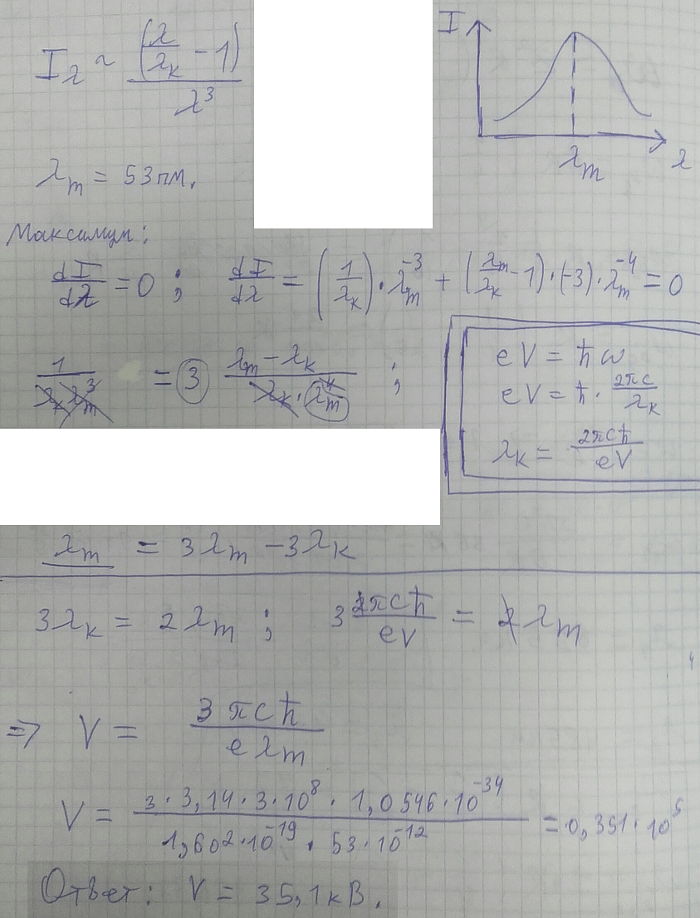 I_λ ~ (λ/λ_k - 1)/λ³
I
λ_m
λ
λ_m = 53 пм.
Максимум:
dI/dλ = 0 ; dI/dλ = (1/λ_k)·λ_m^-3 + (λ_m/λ_k - 1)·(-3)·λ_m^-4 = 0
1/(λ_k λ_m³) = 3 (λ_m - λ_k)/(λ_k·λ_m⁴) ;
eV = ħω
eV = ħ · 2πc/λ_k
λ_k = 2πcħ/eV
λ_m = 3λ_m - 3λ_k
3λ_k = 2λ_m ; 3 2πcħ/eV = 2λ_m
=> V = 3πcħ/eλ_m
V = (3·3,14·3·10⁸·1,0546·10^-34)/(1,602·10^-19·53·10^-12) = 0,351·10⁵
Ответ: V = 35,1 кВ.